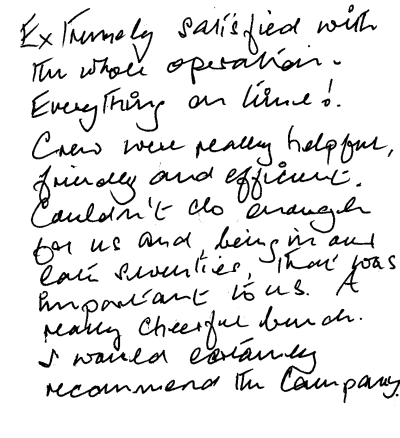 Extremely satisfied with
the whole operation.
Everything on time!.
Crew were really helpful,
friendly and efficient.
Couldn't do enough
for us and, being in our
late seventies, that was
important to us. A
really cheerful bunch.
I would certainly
recommend the Company.